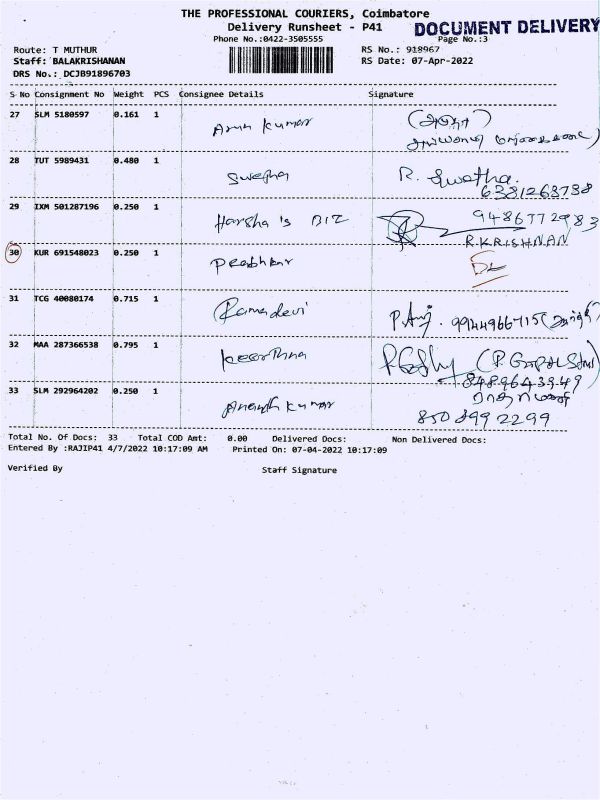 THE PROFESSIONAL COURIERS, Coimbatore
Delivery Runsheet - P41
DOCUMENT DELIVERY
Phone No.:0422-3505555
Page No.:3
Route: T MUTHUR
RS No.: 918967
Staff: BALAKRISHANAN
RS Date: 07-Apr-2022
DRS No.: DCJB91896703
S No Consignment No Weight PCS Consignee Details Signature
27 SLM 5180597 0.161 1 Arun kumar
28 TUT 5989431 0.480 1 Swetha R. Swetha.
6381263738
29 IXM 501287196 0.250 1 Harsha's BIZ 9486772983
R.KRISHNAN
30 KUR 691548023 0.250 1 Prabhkar DL
31 TCG 40080174 0.715 1 Ramadevi 9944966715
32 MAA 287366538 0.795 1 keerthna
8489643949
33 SLM 292964202 0.250 1 Ananth kumar
850 899 2299
Total No. Of Docs: 33 Total COD Amt: 0.00 Delivered Docs: Non Delivered Docs:
Entered By :RAJIP41 4/7/2022 10:17:09 AM Printed On: 07-04-2022 10:17:09
Verified By Staff Signature